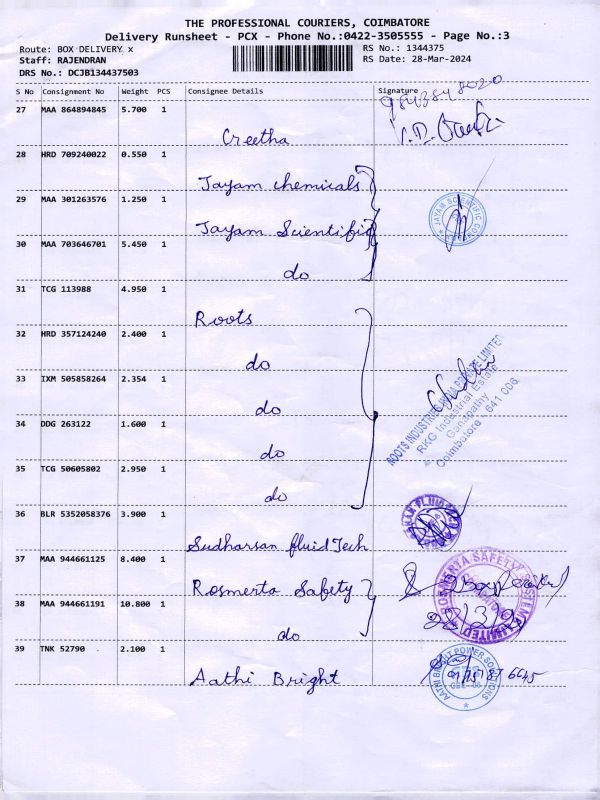 THE PROFESSIONAL COURIERS, COIMBATORE
Delivery Runsheet - PCX - Phone No.:0422-3505555 - Page No.:3
Route: BOX DELIVERY x
RS No.: 1344375
Staff: RAJENDRAN
RS Date: 28-Mar-2024
DRS No.: DCJB134437503
S No Consignment No Weight PCS Consignee Details Signature
9843848020
27 MAA 864894845 5.700 1
Creetha
28 HRD 709240022 0.550 1
Jayam chemicals
29 MAA 301263576 1.250 1
Jayam Scientific
JAYAM SCIENTIFIC
30 MAA 703646701 5.450 1
do
31 TCG 113988 4.950 1
Roots
32 HRD 357124240 2.400 1
do
33 IXM 505858264 2.354 1
do
ROOTS INDUSTRIES INDIA PRIVATE LIMITED
RKG Industrial Estate
Ganapathy
Coimbatore - 641 006
34 DDG 263122 1.600 1
do
35 TCG 50605802 2.950 1
do
36 BLR 5352058376 3.900 1
Sudharsan fluid Tech
37 MAA 944661125 8.400 1
Rosmerta Safety
ROSMERTA SAFETY SYSTEMS LIMITED
38 MAA 944661191 10.800 1
do
39 TNK 52790 . 2.100 1
Aathi Bright
AATHI BRIGHT POWER SOLUTIONS